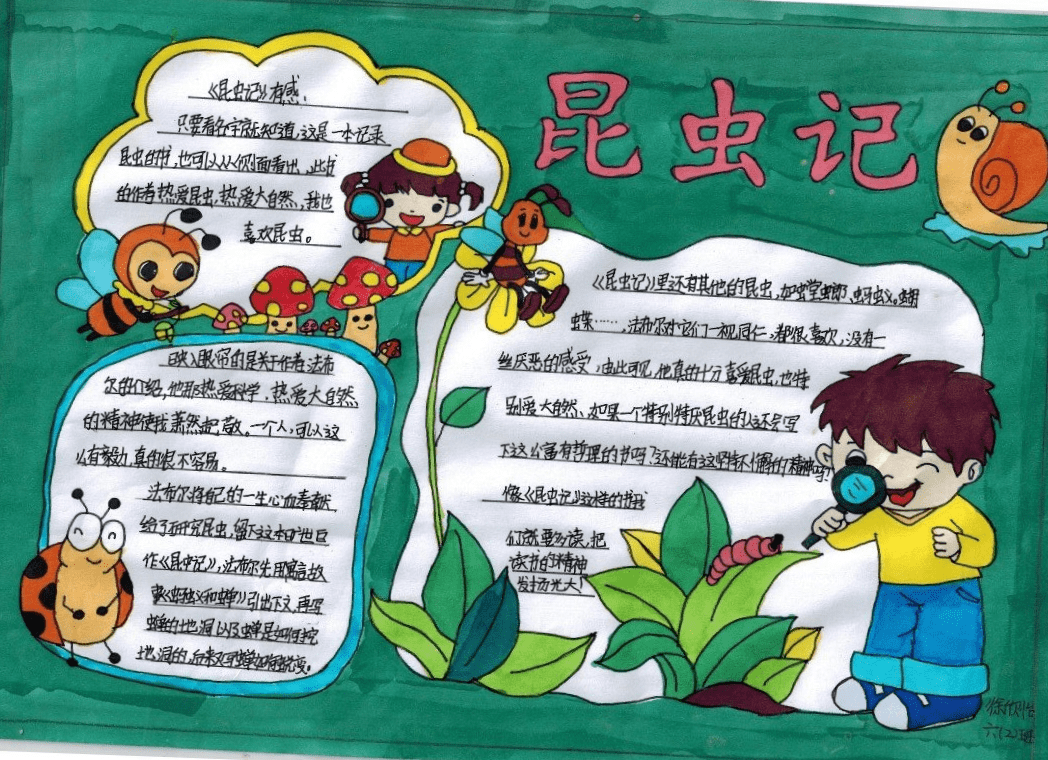 昆虫记
《昆虫记》有感:
只要看名字就知道,这是一本记录
昆虫的书,也可以从侧面看出,此书
的作者热爱昆虫,热爱大自然,我也
喜欢昆虫。
映入眼帘的是关于作者法布
尔的介绍,他那热爱科学,热爱大自然
的精神使我萧然起敬。一个人,可以这
么有毅力,真的很不容易。
法布尔将自己的一生心血奉献
给了研究昆虫,留下这本旷世巨
作《昆虫记》,法布尔先用寓言故
事《蚂蚁和蝉》引出下文,再写
蝉的地洞以及蝉是如何挖
地洞的,后来又写蝉如何蜕变。
《昆虫记》里还有其他的昆虫,如螳螂、蚂蚁、蝴
蝶……,法布尔对它们一视同仁,都很喜欢,没有一
丝厌恶的感受,由此可见,他真的十分喜爱昆虫,也特
别爱大自然、如果一个特别讨厌昆虫的人还会写
下这么富有哲理的书吗?还能有这坚持不懈的精神吗?
像《昆虫记》这样的书我
们就要多读,把
读书的精神
发扬光大!
徐欣怡
六(2)班